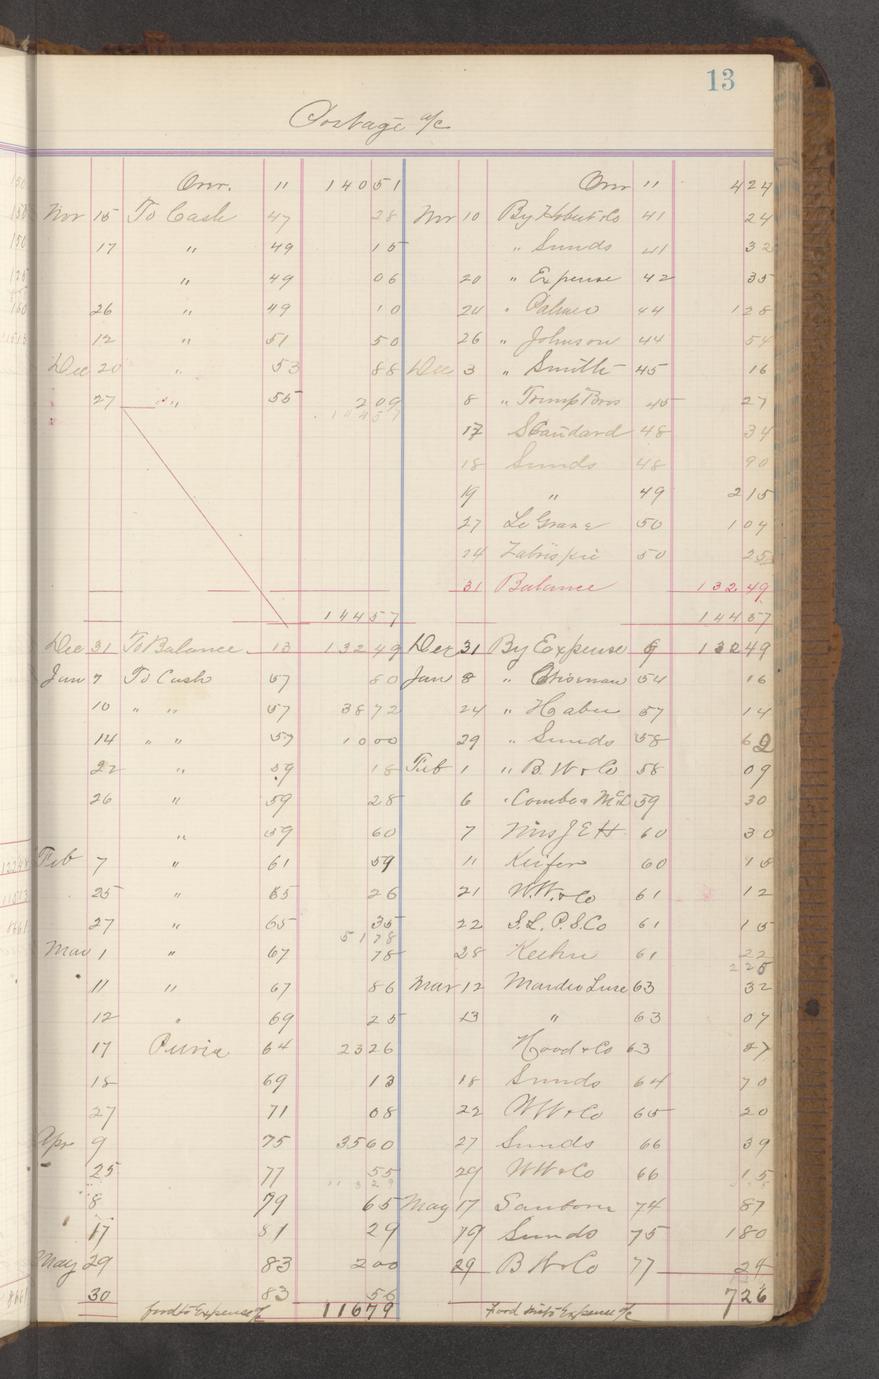 13
Postage a/c
Orr. " 140 51 Orr " 4 24
Nov 15 To Cash 47 28 Nov 10 By Hobert & Co 41 24
17 " 49 15 " Sunds 41 32
" 49 06 20 " Expense 42 35
26 " 49 10 24 " Palmer 44 1 28
12 " 51 50 26 " Johnson 44 54
Dec 20 " 53 88 Dec 3 " Smith 45 16
27 " 55 2 09 8 " Trump Bros 45 27
144 57
17 Standard 48 34
18 Sunds 48 90
19 " 49 2 15
27 Le Grane 50 1 04
24 Zabriskie 50 25
31 Balance 132 49
144 57 144 57
Dec 31 To Balance 13 132 49 Dec 31 By Expense 9 132 49
Jan 7 To Cash 57 80 Jan 8 " 54 16
10 " " 57 38 72 24 " Haber 57 14
14 " " 57 10 00 29 " Sunds 58 62
22 " 59 18 Feb 1 " B. W & Co 58 09
26 " 59 28 6 " Combo & McC 59 30
" 59 60 7 Mrs J E H 60 30
Feb 7 " 61 59 11 Keifer 60 15
25 " 65 26 21 W. W. & Co 61 12
27 " 65 35 22 S. L. P. S. Co 61 15
51 78
Mar 1 " 67 78 28 Keehn 61 22
2 25
11 " 67 86 Mar 12 Luse 63 32
12 " 69 25 13 " 63 07
17 Puria 64 23 26 Hood & Co 63 27
18 69 13 18 Sunds 64 70
27 71 08 22 WW & Co 65 20
Apr 9 75 35 60 27 Sunds 66 39
25 77 55 29 WW & Co 66 15
8 79 65 May 17 Sanborn 74 87
17 81 29 19 Sunds 75 1 80
May 29 83 2 00 29 B W & Co 77 24
30 83 56 7 26
ford to Expense a/c 116 79 Ford into Expense a/c